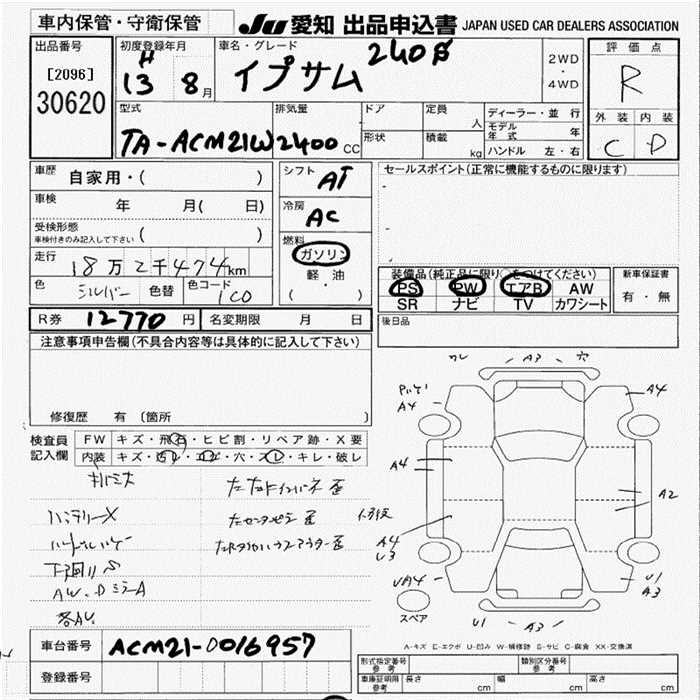 車内保管・守衛保管
JU 愛知 出品申込書 JAPAN USED CAR DEALERS ASSOCIATION
出品番号
[2096]
30620
初度登録年月
H
13 8月
車名・グレード
イプサム 240S
2WD
・
4WD
評価点
R
外装 内装
C D
型式
TA-ACM21W
排気量
2400 CC
ドア
形状
定員
人
積載
kg
ディーラー・並行
モデル年式 年
ハンドル 左・右
車歴
自家用・( )
車検
年 月( 日)
受検形態
車検付きのみ記入して下さい ( )
走行
18万2千474km
色 シルバー 色替 色コード 1C0
シフト AT
冷房 AC
燃料
ガソリン
軽油
( ・ )
セールスポイント(正常に機能するものに限ります)
装備品(純正品に限り○をつけてください)
PS PW エアB AW
SR ナビ TV カワシート
新車保証書
有・無
後日品
R券 12770 円 名変期限 月 日
注意事項申告欄(不具合内容等は具体的に記入して下さい)
修復歴 有 〔箇所
検査員
記入欄
FW キズ・飛石・ヒビ割・リペア跡・X要
内装 キズ・汚レ・コゲ・穴・スレ・キレ・破レ
バッテリーX
下廻りS
AW、DミラーA
A3 穴
A4
A4
A4
A2
A4
U3
U1
A3
スペア
U1 A3
A-キズ E-エクボ U-凹み W-補修跡 S-サビ C-腐食 XX-交換済
車台番号 ACM21-0016957
登録番号
形式指定番号
参考
類別区分番号
参考
車庫証明用
参考
長さ cm 幅 cm 高さ cm